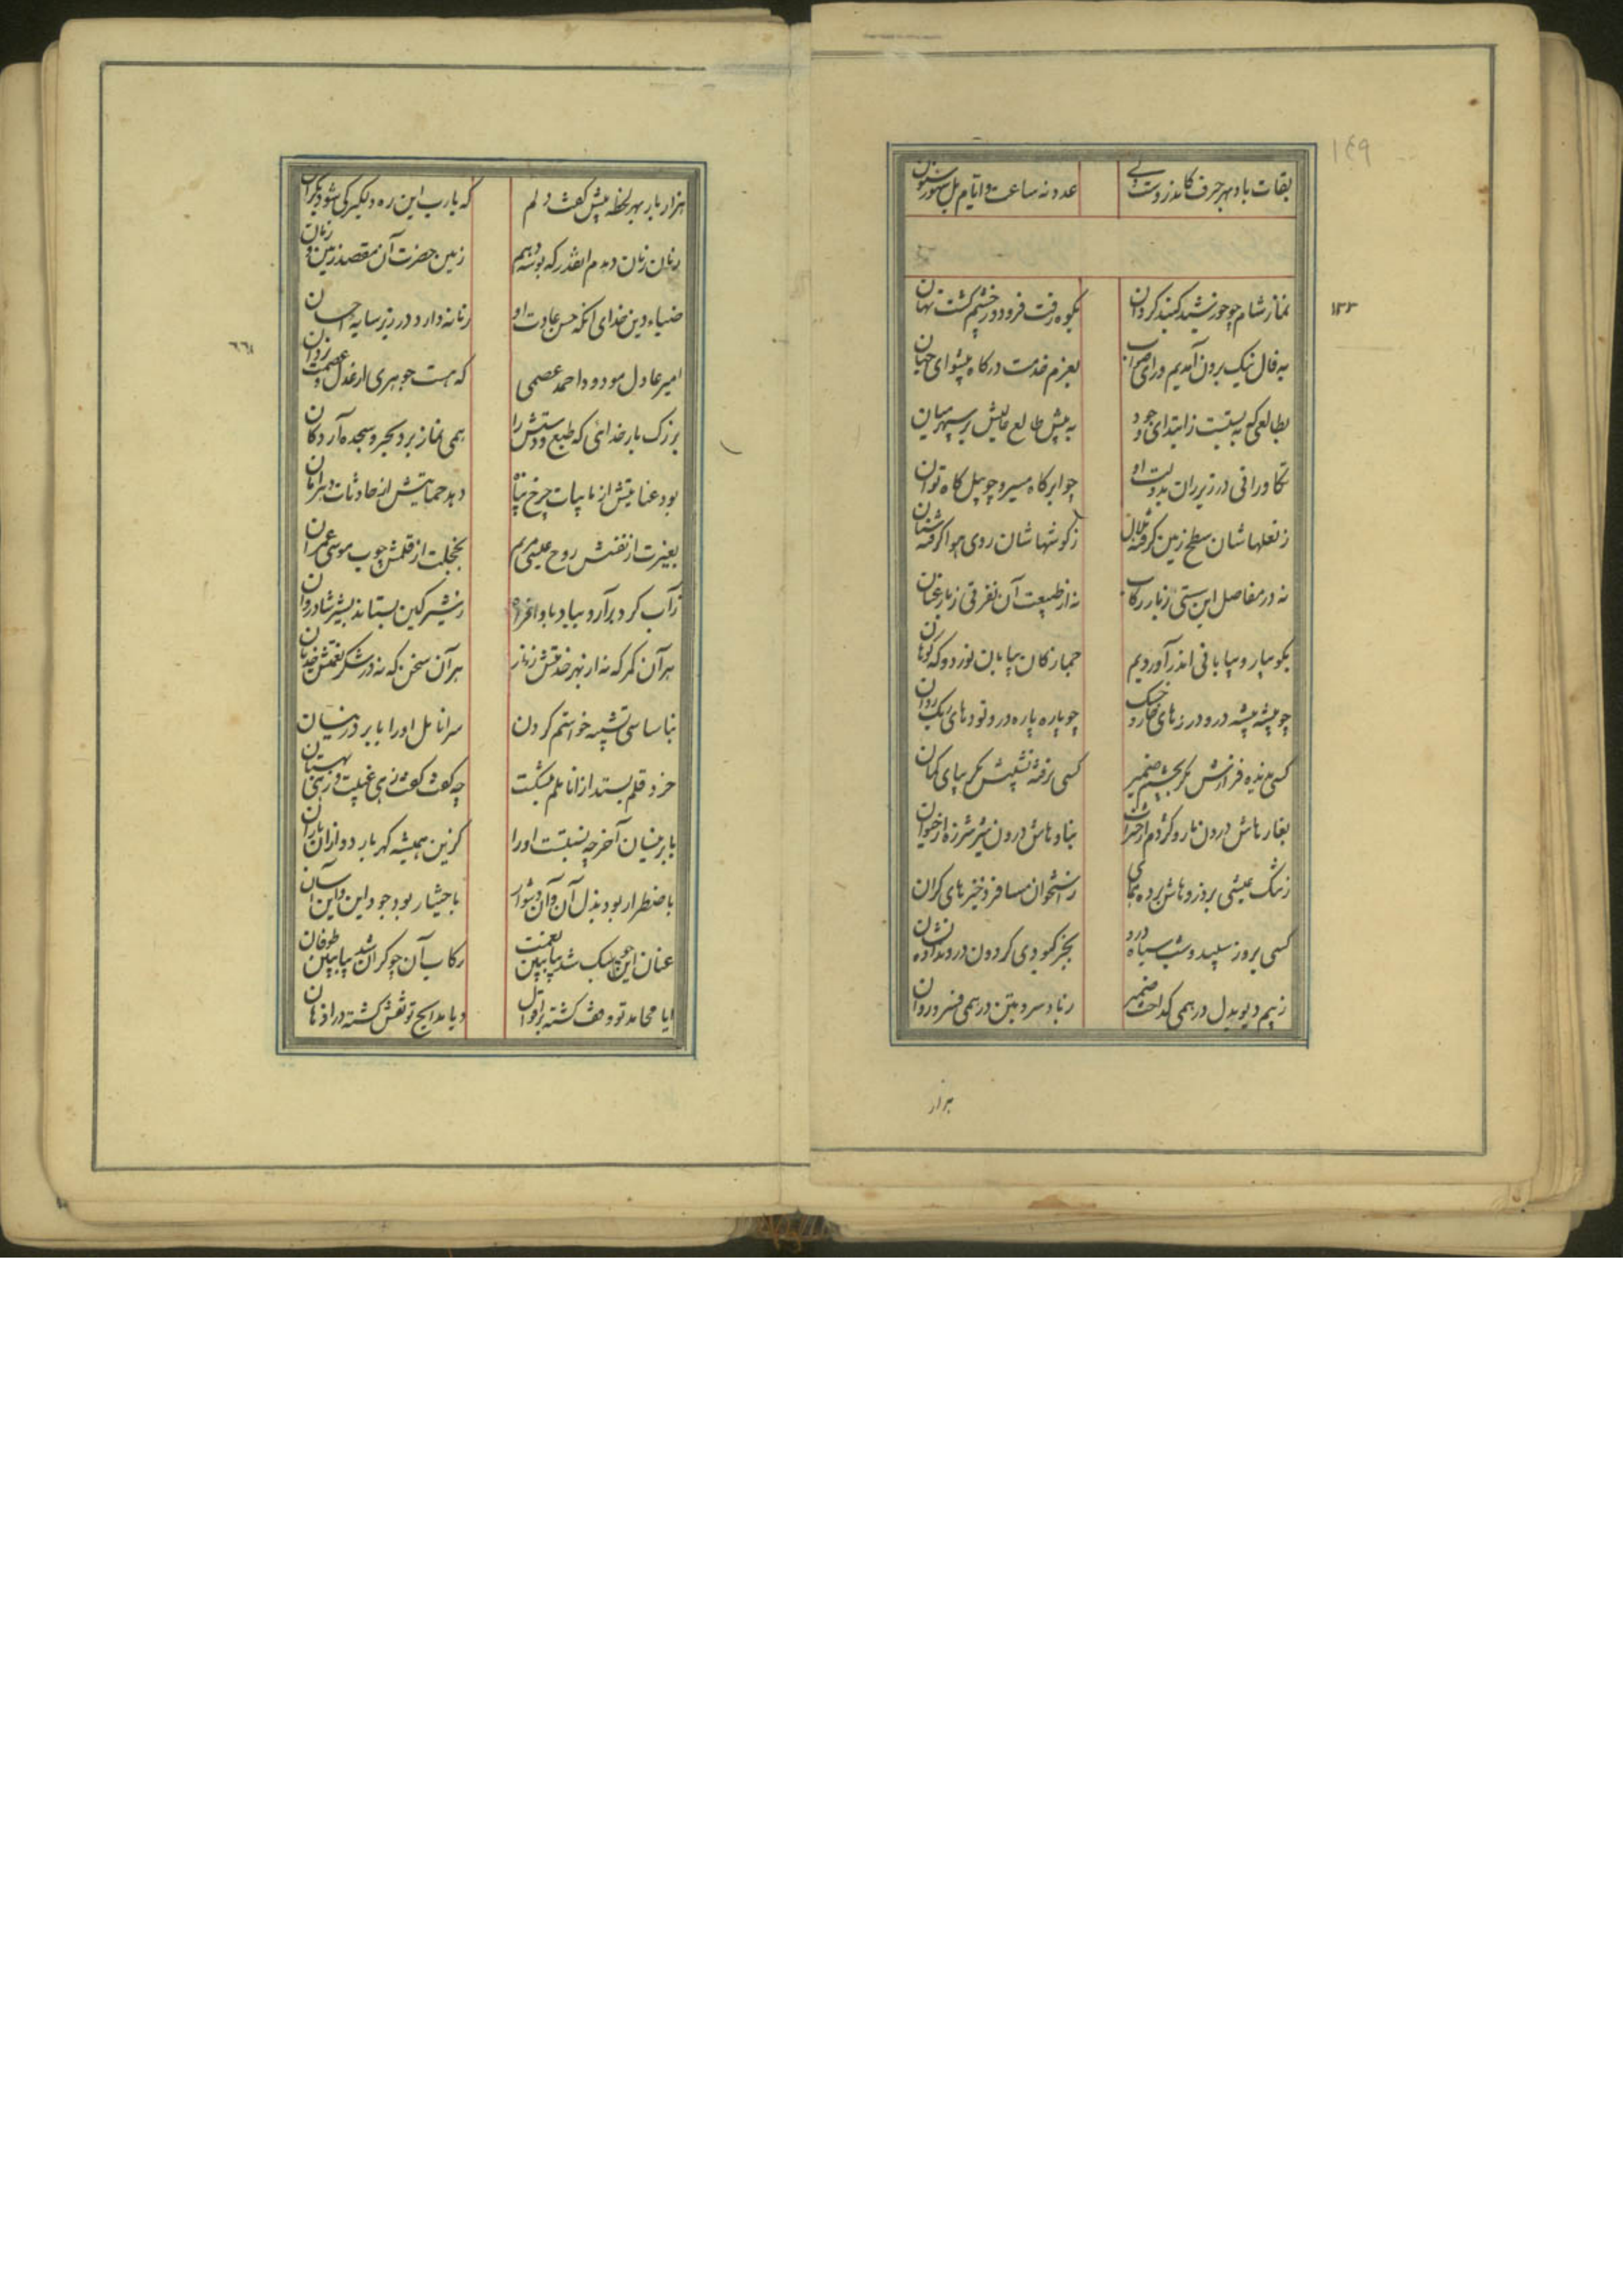 ۱۴۹
بقات باد بهر حرف کاندروست
عدد نه ساعت و ایام بل شهور و سنون
۱۳۳
نماز شام چو خورشید گنبد گردان
بکوه رفت فرو در چشم گشت نهان
به فال نیک برون آمدیم و رای صواب
بعزم خدمت درگاه پیشوای جهان
بطالعی که به پستیست ز ابتدای وجود
به پیش طالع عالیش بر سپهر میان
تکاورانی در زیر ران بدولت او
چو ابر کاه مسیر و چو پیل کاه توان
ز نعلهاشان سطح زمین گرفته هلال
ز گوشهاشان روی هوا گرفته سنان
نه در مفاصل این سستی ز بار رکاب
نه از طبیعت آن نفرتی ز بار عنان
بکوهسار و بیابانی اندر آوردیم
جمازگان بیابان نورد و که کوهان
چو پشه پشه درو درزهای خار و خسک
چو پاره پاره درو تودهای ریگ روان
کسی ندیده فرازش مگر بچشم ضمیر
کسی نرفته نشیبش مگر بپای گمان
بغارهاش درون مار و کژدم از حشرات
بناوهاش درون شیر شرزه از حیوان
ز تنگ عیشی بر ذروهاش برده همای
ز استخوان مسافر ذخیرهای گران
کسی بروز سپید و شب سیاه درو
بجز کبودی گردون درو نداده نشان
ز بیم دیو بدل در همی گداخت ضمیر
ز باد سرد بتن در همی فسرد روان
هزار
هزار بار بهر لحظه پیش گفت دلم
که یارب این ره دلگیر کی شود بکران
زنان زنان دیدم اینقدر که بوسه دهم
زمین حضرت آن مقصد زمین و زمان
ضیاء دین خدای آنکه حسن عادت او
زمانه دارد در زیر سایه احسان
۱۶۶
امیر عادل مودود احمد عصمی
که هست جوهری از عدل و عصمت یزدان
بزرگ بار خدائی که طبع و دستش را
همی نماز برد بحر و سجده آرد کان
بود عنایتش از نایبات چرخ پناه
دهد حمایتش از حادثات دهر امان
بغیرت از نفسش روح عیسی مریم
بخجلت از قلمش چوب موسی عمران
ز آب گرد برآرد بباد بادافراه
ز شیر کین بستاند بشیر شادروان
هر آن کمر که نه از بهر خدمتش زنار
هر آن سخن که نه در شکر نعمتش هذیان
بناسپاسی تشبیه خواستم کردن
سر انامل او را بابر در نیسان
خرد قلم بستد از اناملم بشکست
چه گفت گفت زهی غیبت و زهی بهتان
بابر نیسان آخر چه نسبتست او را
کزین همیشه گهر بارد و از آن باران
باضطرار بود بذل آن و آن دشوار
باختیار بود جود این و این آسان
عنان این چو سبک شد بیا ببین نعمت
رکاب آن چو گران شد بیا ببین طوفان
ایا محامد تو وقف گشته بر اقوال
و یا مدایح تو نقش گشته در اذهان